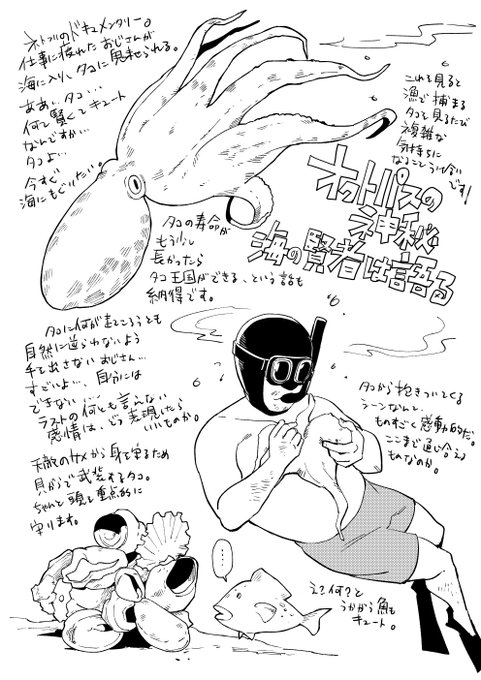 ネトフリのドキュメンタリー。
仕事に疲れたおじさんが
海に入り、タコに魅せられる。
ああ…タコ…
何て賢くてキュート
なんですか…
タコよ…
今すぐ
海にもぐりたい。
これを見ると
漁で捕まる
タコを見るたび
複雑な
気持ちに
なること うけ合い
です!
オクトパスの
神秘
海の賢者は語る
タコの寿命が
もう少し
長かったら
タコ王国ができる、という話も
納得です。
タコに何が起ころうとも
自然に逆らわないよう
手を出さないおじさん…
すごいよ…、自分には
できない…
ラストの何とも言えない
感情は、どう表現したら
いいものか。
タコから抱きついてくる
シーンなんて、
ものすごく感動的だ。
ここまで通じ合える
ものなのか。
天敵のサメから身を守るため
貝がらで武装するタコ。
ちゃんと頭を重点的に
守ります。
……
え?何?と
うかがう魚も
キュート。